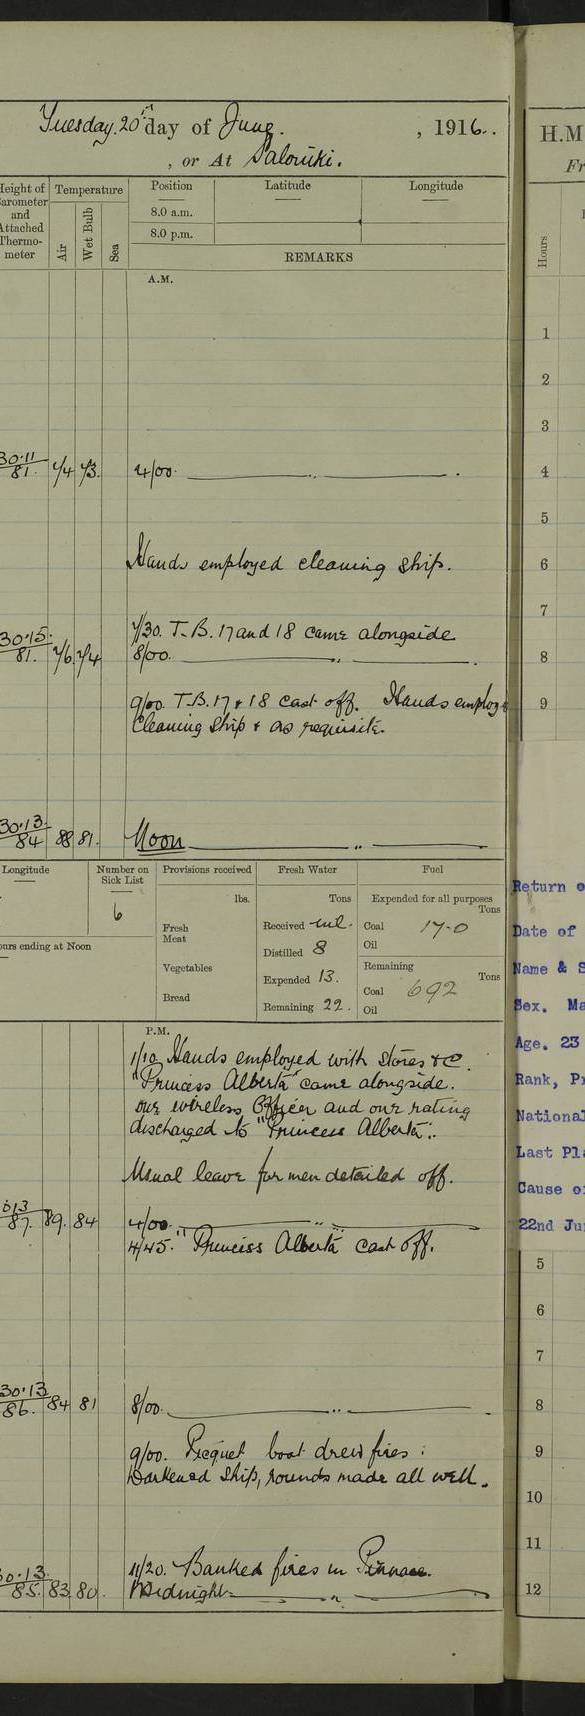 Tuesday 20th day of June. , 1916..
, or At Salonuki.
Height of Barometer and Attached Thermometer
Temperature
Air
Wet Bulb
Sea
Position
Latitude
Longitude
8.0 a.m.
8.0 p.m.
REMARKS
A.M.
30.11
81. 74 73. 4/00. ———— " ———— .
Hands employed cleaning ship.
7/30. T.B. 17 and 18 came alongside
30.15.
81. 76. 74 8/00. ———— " ———— .
9/00. T.B. 17 & 18 cast off. Hands employ
Cleaning Ship & as requisite.
30.13.
84 88 81. Noon ———— " ————
Longitude
Number on Sick List
6
ours ending at Noon
Provisions received
lbs.
Fresh Meat
Vegetables
Bread
Fresh Water
Tons
Received nil.
Distilled 8
Expended 13.
Remaining 22.
Fuel
Expended for all purposes
Tons
Coal 17-0
Oil
Remaining
Tons
Coal 692
Oil
P.M.
1/10. Hands employed with stores &c.
"Princess Alberta" came alongside.
one wireless Officer and one rating
discharged to "Princess Alberta".
Usual leave for men detailed off.
87. 89. 84 4/00. ———— " ————
4/45. "Princess Alberta" cast off.
30.13
86. 84 81 8/00. ———— " ———— .
9/00. Picquet boat drew fires :
Darkened Ship, rounds made all well.
11/20. Banked fires in Pinnace.
30.13.
85. 83. 80. Midnight ———— " ————
H.M
Fr
Hours
1
2
3
4
5
6
7
8
9
Return o
Date of
Name & S
Sex. Ma
Age. 23
Rank, Pr
National
Last Pla
Cause o
22nd Ju
5
6
7
8
9
10
11
12